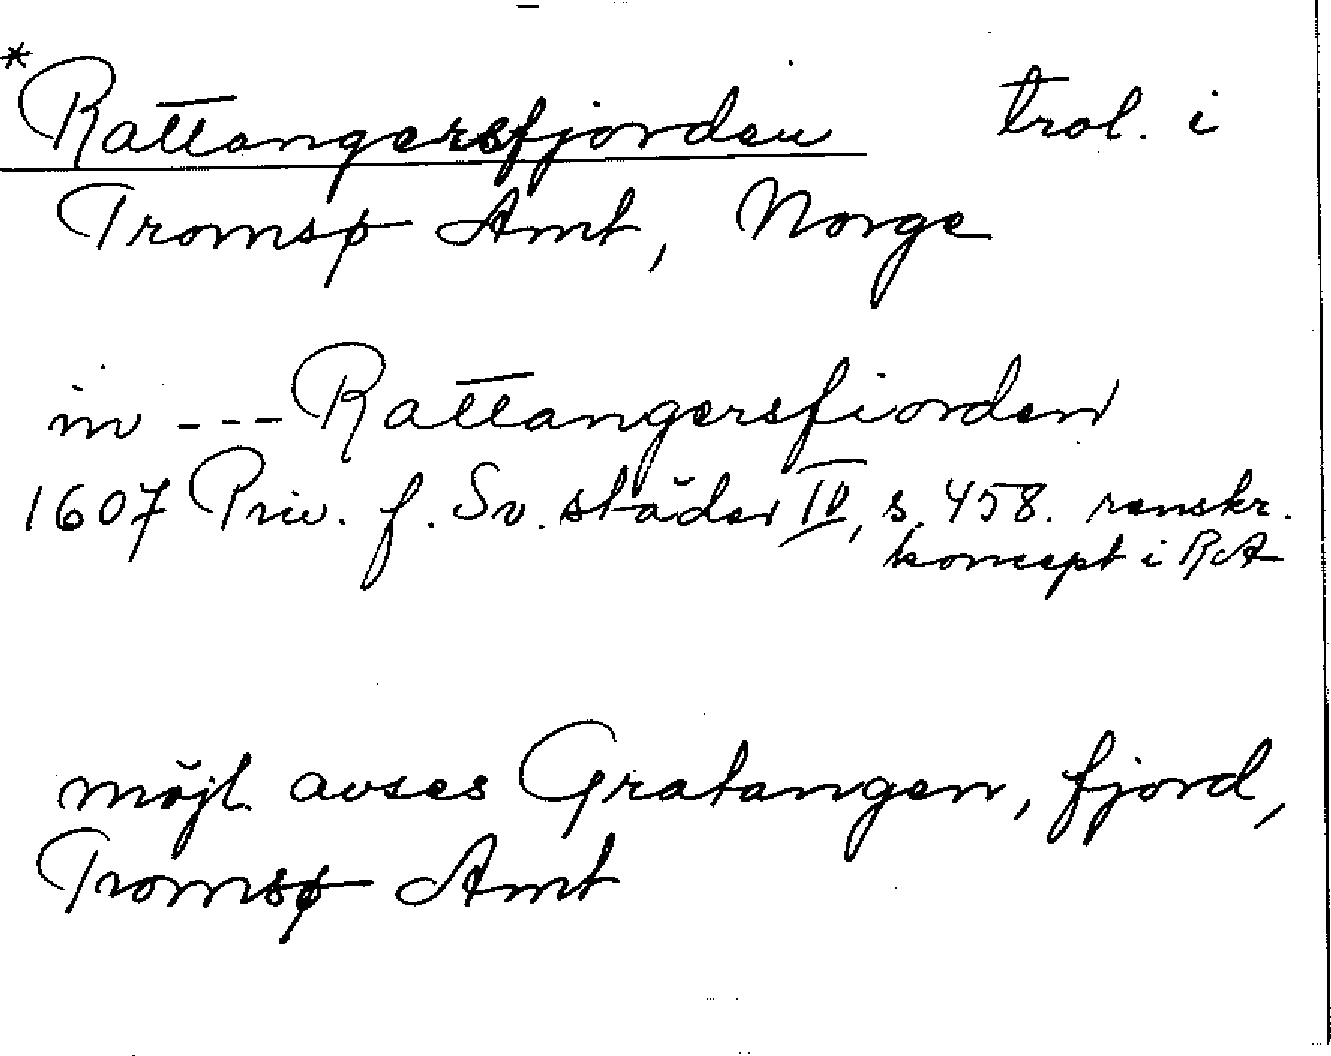 *Rattangersfjorden trol. i
Tromsø Amt, Norge
in --- Rattangersfiorden
1607 Priv. f. Sv. städer IV, s. 458. renskr.
koncept i RA
möjl. avses Gratangen, fjord,
Tromsø Amt